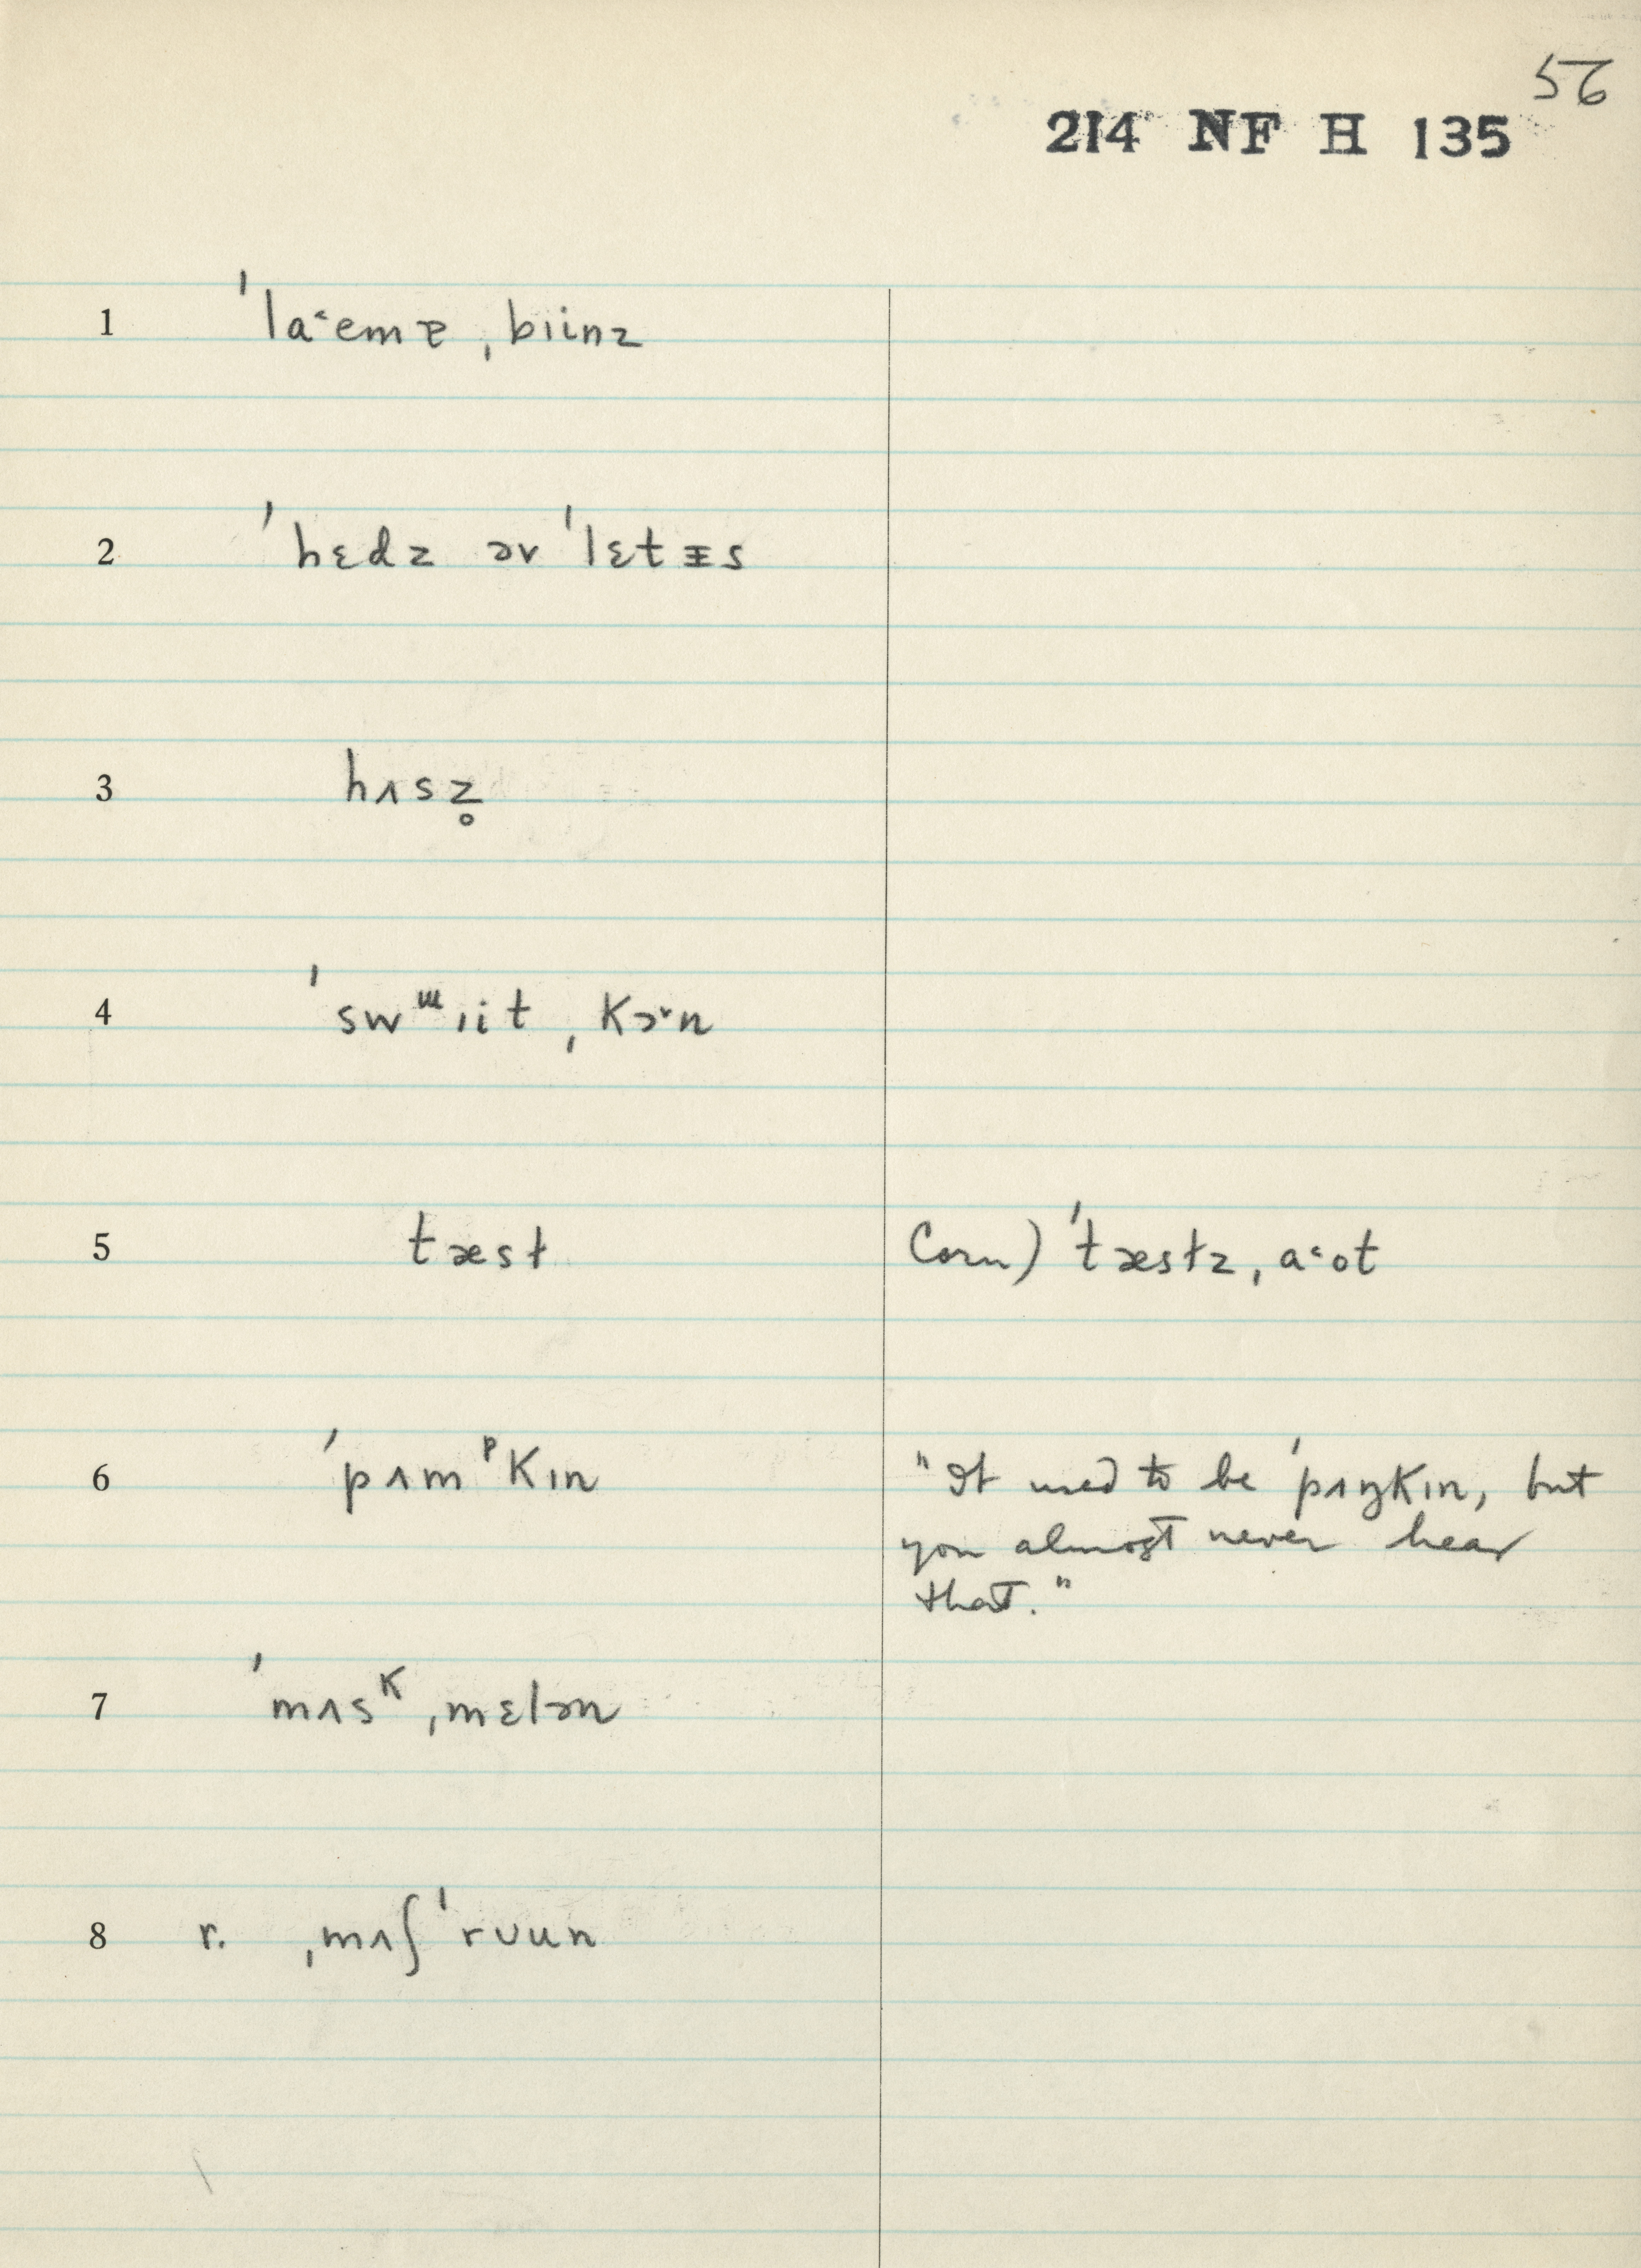 56
214 NF H 135
1 ˈla˂emƶ ˌbɪinz
2 ˈhɛdz əv ˈlɛtᵻs
3 hʌsz̥
4 ˈswᵚɪit ˌkɔ˞n
5 tæsɫ Corn) ˈtæsɫz ˌa˂ot
6 ˈpʌmᵖkɪn "It used to be ˈpʌŋkɪn, but
you almost never hear
that."
7 ˈmʌsᴷ ˌmɛlən
8 r. ˌmʌʃˈrʊun